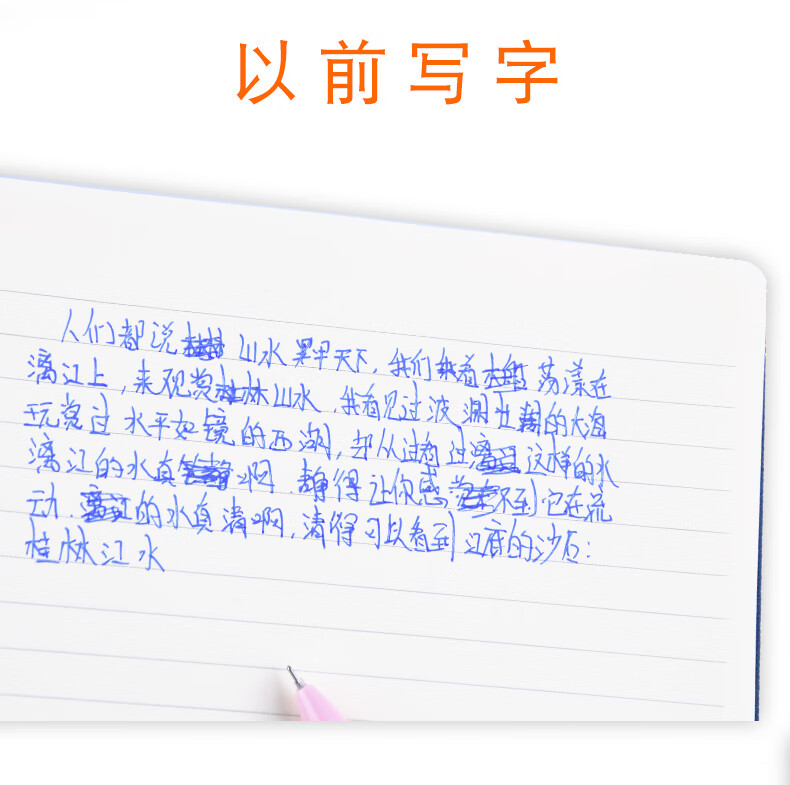 以前写字
人们都说山水甲天下，我们荡漾在
漓江上，来观赏桂林山水，我看见过波澜壮阔的大海
玩赏过水平如镜的西湖，却从过这样的水
漓江的水真啊．静得让你感不到它在流
动．漓江的水真清啊，清得可以看到江底的沙石：
桂林江水